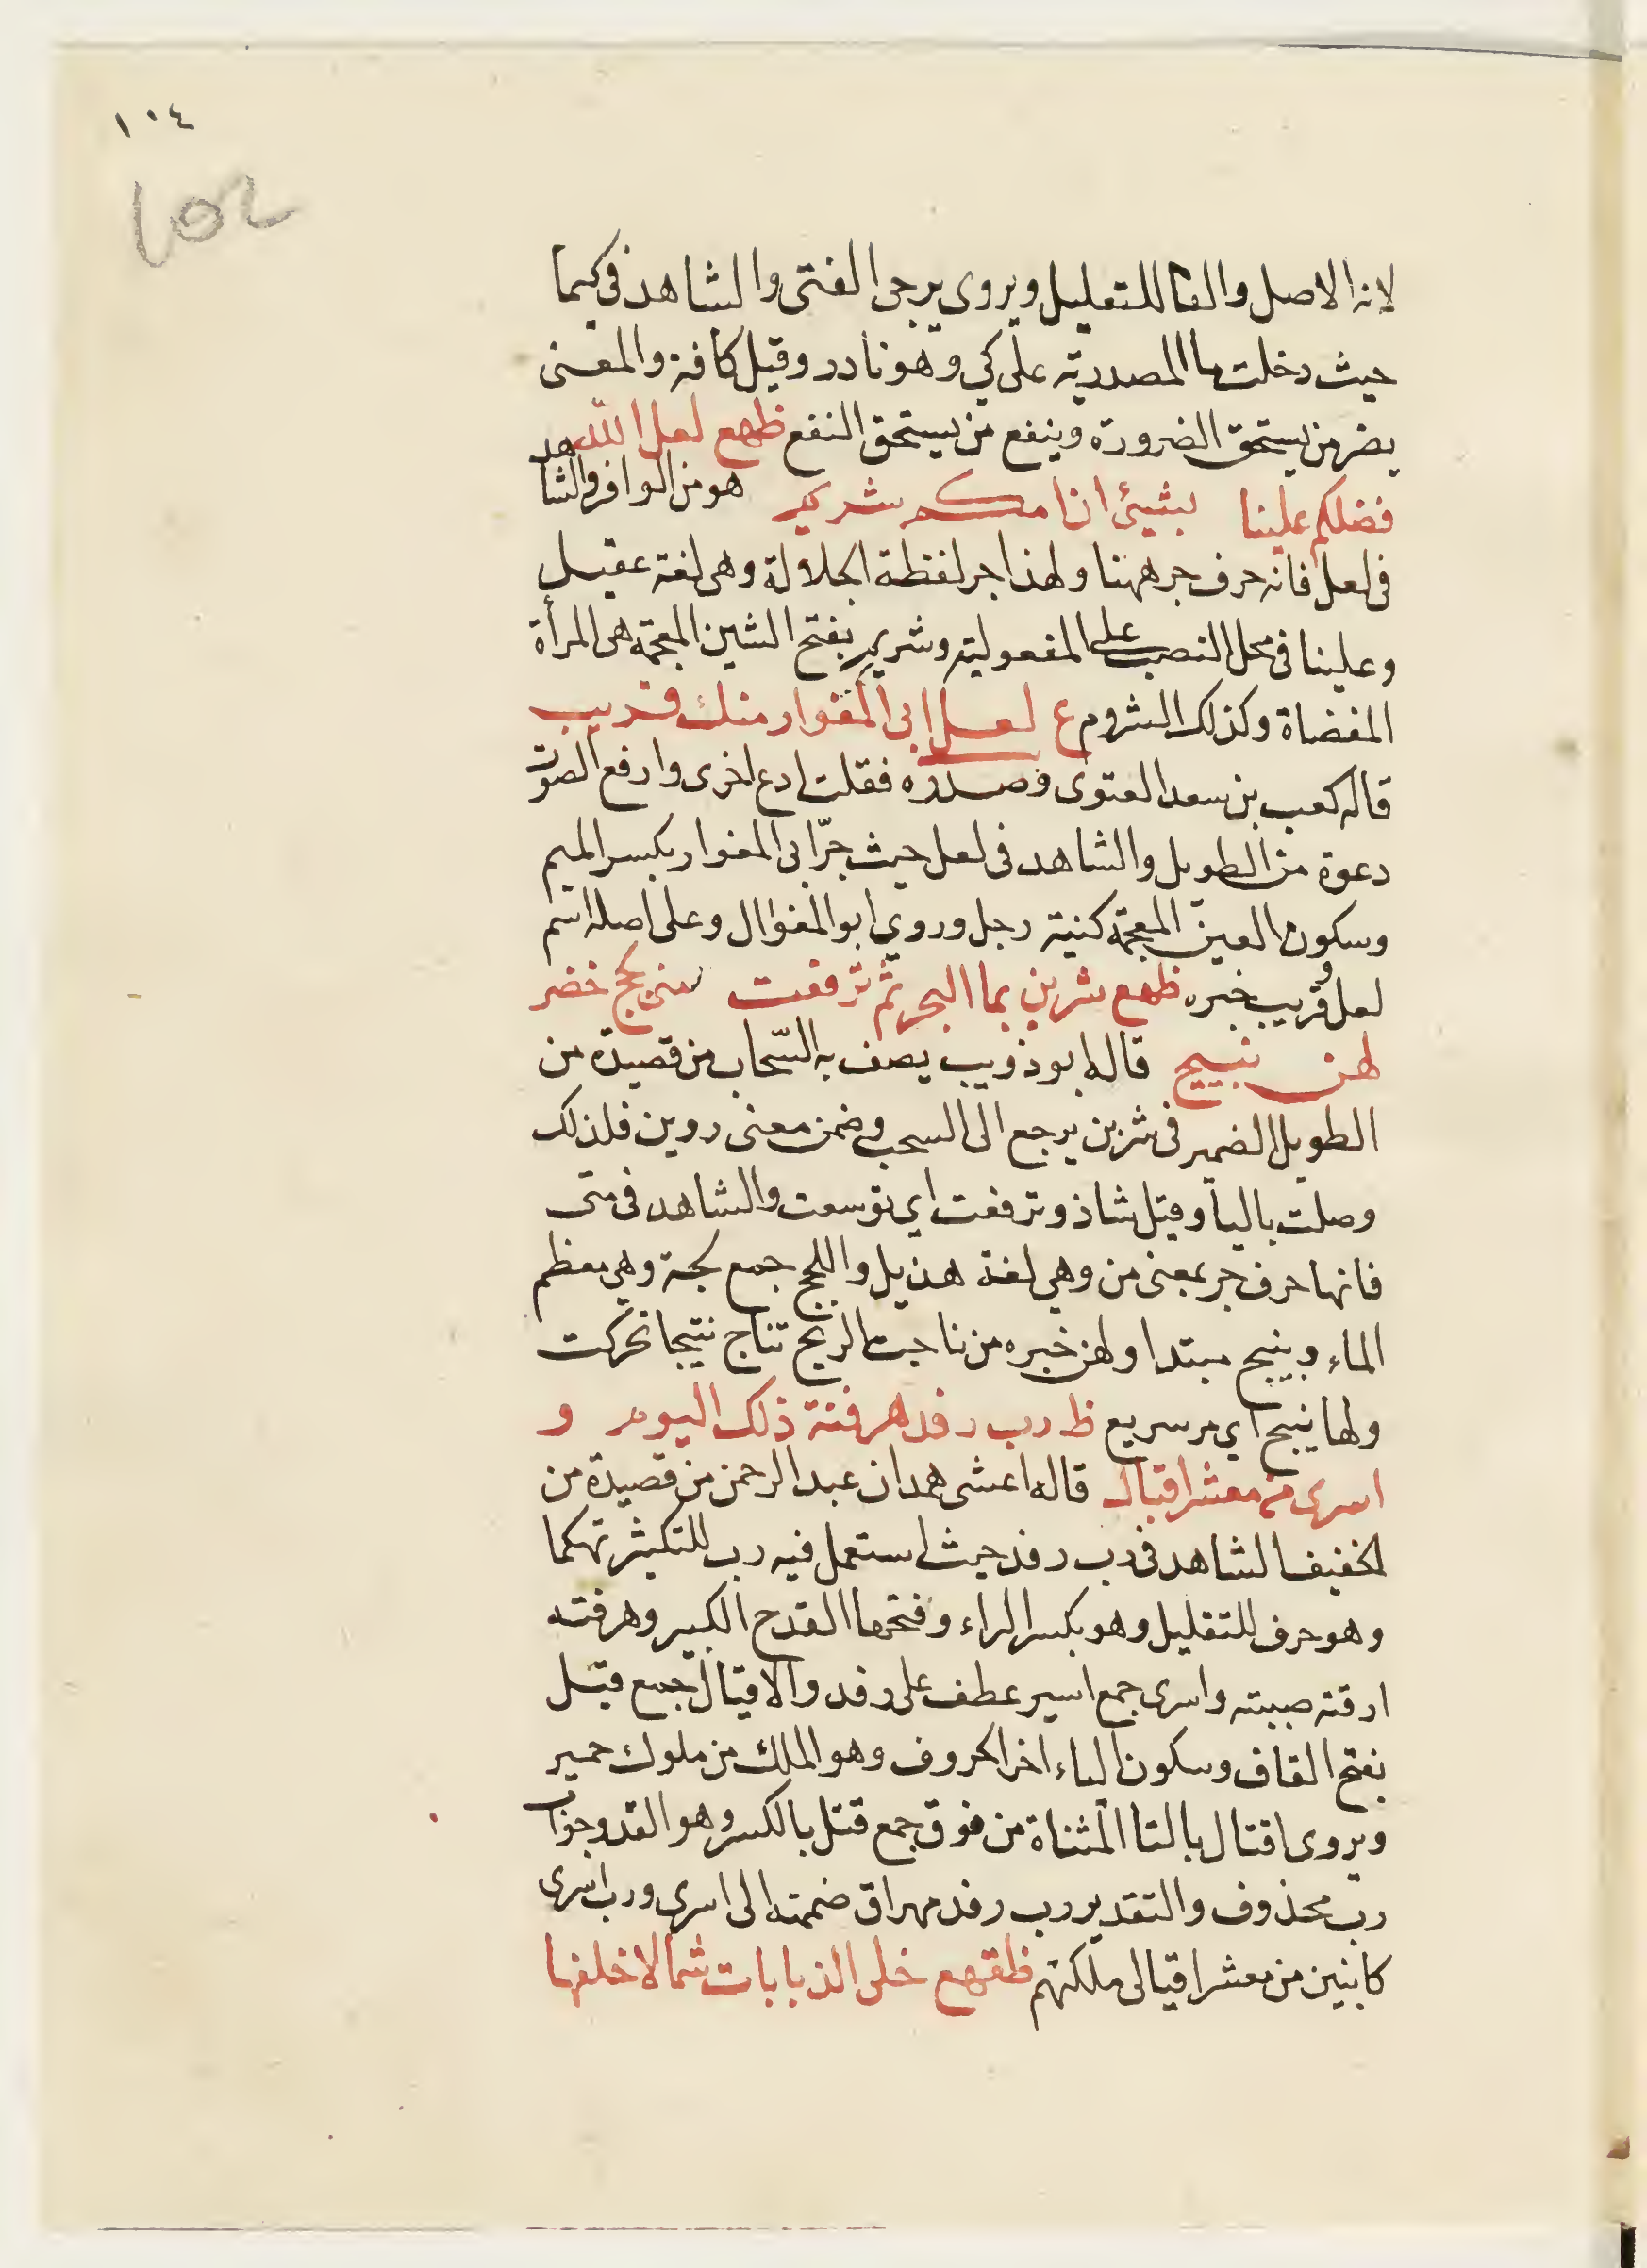 ١٠٤
١٥٤
لانه الاصل والفا للتعليل ويروى يرجى الفتى والشاهد فى كيما
حيث دخلت ما المصدرية على كي وهو نادر وقيل كافة والمعنى
يضر من يستحق الضرورة وينفع من يستحق النفع ظهع لعل الله
فضلكم علينا بشيئ ان امكم شريم هو من الوافر والشاهد
فى لعل فانه حرف جر ههنا ولهذا جر لفظة الجلالة وهى لغة عقيل
وعلينا فى محل النصب على المفعولية وشريم بفتح الشين المعجمة هى المرأة
المفضاة وكذلك الشروم ع لعل ابى المغوار منك قريب
قاله كعب بن سعد الغنوى وصدره فقلت ادع اخرى وارفع الصوت
دعوة من الطويل والشاهد فى لعل حيث جرّ ابى المغوار بكسر الميم
وسكون الغين المعجمة كنية رجل وروي ابو المغوال وعلى اصله اسم
لعل وقريب خبره ظهع شربن بما البحر ثم ترفعت متى لجج خضر
لهن نييج قاله ابو ذويب يصف به السّحاب من قصيدة من
الطويل الضمير فى شربن يرجع الى السحب وضمن معنى روين فلذلك
وصلت باليا وقيل شاذ وترفعت اي توسعت والشاهد فى متى
فانها حرف جر بمعنى من وهي لغة هذيل واللجج جمع لجة وهي معظم
الماء ونييج مبتدا ولهن خبره من ناجت الريح تناج نئيجا تحركت
ولها نييج اي مر سريع ظ رب رفد هرقته ذلك اليوم و
اسرى من معشر اقيال قاله اعشى همدان عبد الرحمن من قصيدة من
الخفيف الشاهد فى رب رفد حيث استعمل فيه رب للتكثير تهكما
وهو حرف للتقليل وهو بكسر الراء وفتحها القدح الكبير وهرقته
ارقته صببته واسرى جمع اسير عطف على رفد والاقيال جمع قيل
بفتح القاف وسكون الياء اخر الحروف وهو الملك من ملوك حمير
ويروى اقتال بالتا المثناة من فوق جمع قتل بالكسر وهو القد وجواب
ربّ محذوف والتقدير رب رفد مهراق ضممته الى اسرى ورب اسرى
كاينين من معشر اقيالى ملكتهم ظقهع خلى الذبابات شمالا خلفها